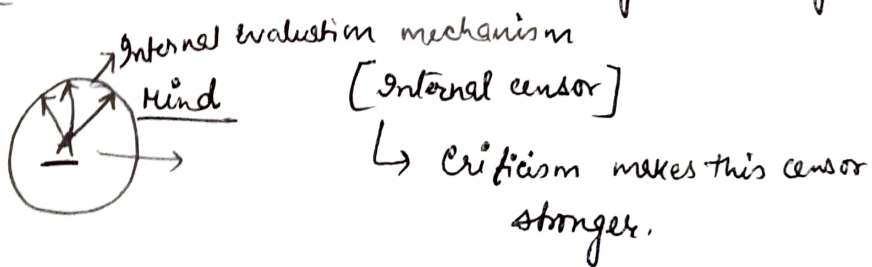 Internal evaluation mechanism
Mind [Internal censor]
↳ Criticism makes this censor
stronger.